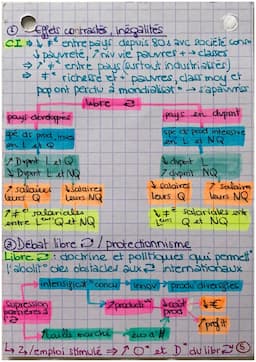 ① Effets contrastés, inégalités
CI ⇒ ↓ ≠ entre pays depuis 80s avec société
↓ pauvreté, ↗ niv vie pauvres ↔ classes
⇒ ↗ ≠ entre pays (surtout industrialisés)
⇒ ≠ richesse et + pauvres, class moy et
pop ont perdu à mondialisat° → s'apauvris
libre ⇄
pays développés
pays en dvpmt
spé ds prod intens
en L et Q
spé ds prod intensive
en L et NQ
↗ Dvpmt L et Q
↘ Dvpmt L et NQ
↓ dvpmt L
↗ dvpmt NQ
↗ salaires
leurs Q
↓ salaires
leurs NQ
↓ salaires
leurs Q
↗ salaires
leurs NQ
↗ ≠ salariales
et Q et NQ
↓ ≠ salariales entre
Q et NQ
③ Débat libre ⇄ / protectionnisme
Libre ⇄ : doctrine et politiques qui permett
l'abolit° des obstacles aux ⇄ internationaux
intensifie concu
innov
prod diversifiés
supression
barrières à
l'⇄
↗ productiv
↓ coût
prod
↓ €
↗ profit
↗ taille marché
eco d'#
↳ ⇄ / emploi stimulé ⇒ ↗ O° et D° du libre ⇄ ⑤